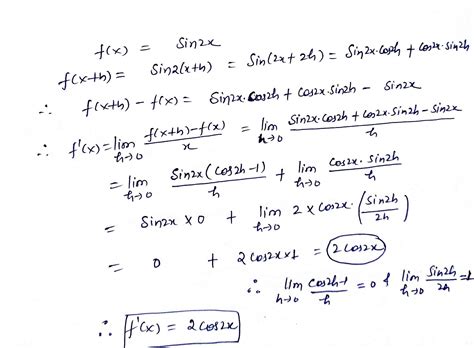 f(x) = Sin2x
f(x+h) = Sin2(x+h) = Sin(2x+2h) = Sin2x.cos2h + cos2x.sin2h
∴ f(x+h) - f(x) = Sin2x.Cos2h + cos2x.sin2h - sin2x
∴ f'(x) = lim h→0 (f(x+h)-f(x))/x = lim h→0 (Sin2x.cos2h + cos2x.sin2h - sin2x)/h
= lim h→0 Sin2x(cos2h-1)/h + lim h→0 cos2x.sin2h/h
= Sin2x x 0 + lim h→0 2 x cos2x.(sin2h/2h)
= 0 + 2cos2x x 1 = 2cos2x
∴ lim h→0 (cos2h-1)/h = 0 & lim h→0 sin2h/2h = 1
∴ f'(x) = 2cos2x